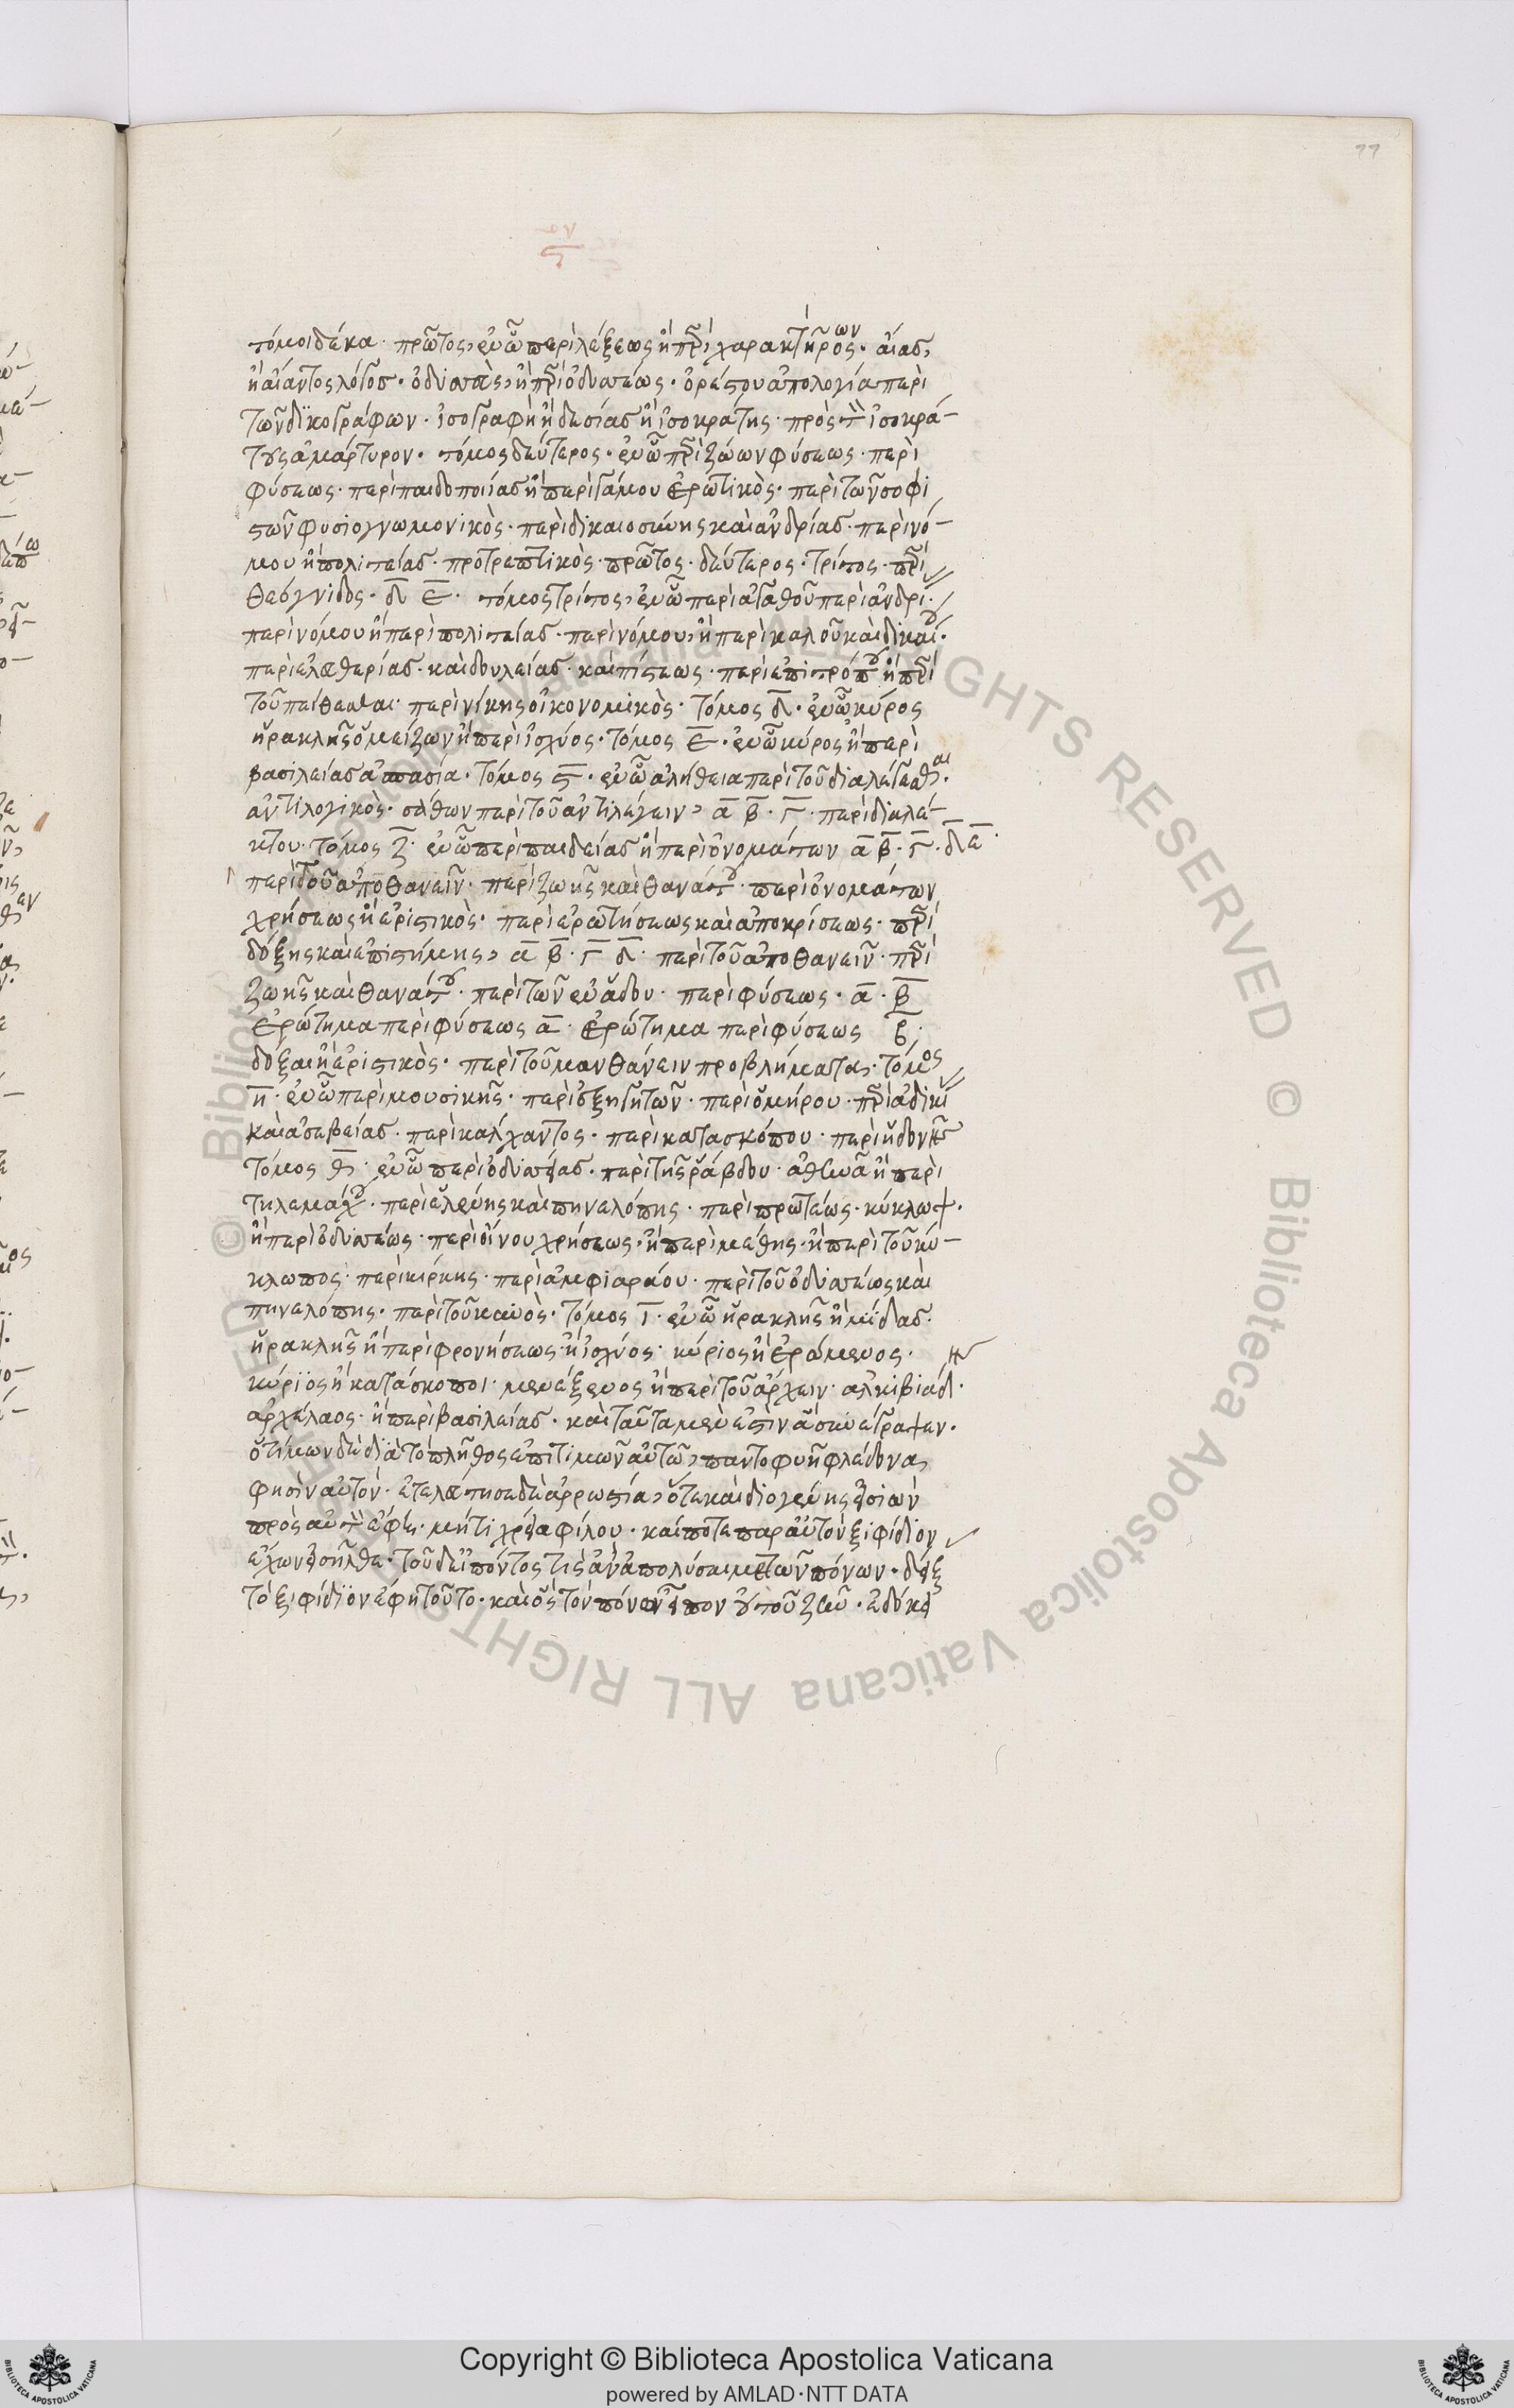 77
τόμοι δέκα· πρῶτος, ἐν ᾧ περὶ λέξεως ἢ περὶ χαρακτήρος ων· αἴας,
ἢ αἴαντος λόγος· ὀδυσσεὺς, ἢ περὶ ὀδυσσέως· ὀρέστου ἀπολογία περὶ
τῶν δικογράφων· ἰσογραφὴ ἢ δεσίας ἢ ἰσοκράτης· πρὸς τὸν ἰσοκρά-
τους ἀμάρτυρον· τόμος δεύτερος· ἐν ᾧ περὶ ζώων φύσεως· περὶ
φύσεως· περὶ παιδοποιίας ἢ περὶ γάμου ἐρωτικὸς· περὶ τῶν σοφι
στῶν φυσιογνωμονικὸς· περὶ δικαιοσύνης καὶ ἀνδρίας· περὶ νό-
μου ἢ πολιτείας· προτρεπτικὸς· πρῶτος· δεύτερος· τρίτος· περὶ
θεόγνιδος· δ ε· τόμος τρίτος, ἐν ᾧ περὶ ἀγαθοῦ περὶ ἀνδρι·
περὶ νόμου ἢ περὶ πολιτείας· περὶ νόμου, ἢ περὶ καλοῦ καὶ δικαίου·
περὶ ἐλευθερίας· καὶ δουλείας· καὶ πίστεως· περὶ ἐπιτρόπου ἢ περὶ
τοῦ πείθεσθαι· περὶ νίκης οἰκονομικὸς· τόμος δ· ἐν ᾧ κύρος
ἡρακλῆς ὁ μείζων ἢ περὶ ἰσχύος· τόμος ε· ἐν ᾧ κύρος ἢ περὶ
βασιλείας ἀσπασία· τόμος ς· ἐν ᾧ ἀλήθεια περὶ τοῦ διαλέγεσθαι·
ἀντιλογικὸς· σάθων περὶ τοῦ ἀντιλέγειν, α β· γ· περὶ διαλέ-
κτου· τόμος ζ· ἐν ᾧ περὶ παιδείας ἢ περὶ ὀνομάτων α β· γ· δ ε·
περὶ τοῦ ἀποθανεῖν· περὶ ζωῆς καὶ θανάτου· περὶ ὀνομάτων
χρήσεως ἢ ἐριστικὸς· περὶ ἐρωτήσεως καὶ ἀποκρίσεως· περὶ
δόξης καὶ ἐπιστήμης, α β· γ δ· περὶ τοῦ ἀποθανεῖν· περὶ
ζωῆς καὶ θανάτου· περὶ τῶν ἐν ᾅδου· περὶ φύσεως· α· β
ἐρώτημα περὶ φύσεως α· ἐρώτημα περὶ φύσεως β·
δόξαι ἢ ἐριστικὸς· περὶ τοῦ μανθάνειν προβλήματα· τόμος
η· ἐν ᾧ περὶ μουσικῆς· περὶ ἐξηγητῶν· περὶ ὁμήρου· περὶ ἀδικί
καὶ ἀσεβείας· περὶ κάλχαντος· περὶ κατασκόπου· περὶ ἡδονῆς
τόμος θ· ἐν ᾧ περὶ ὀδυσσείας· περὶ τῆς ῥάβδου· ἀθηνᾶ ἢ περὶ
τηλεμάχου· περὶ ἑλένης καὶ πηνελόπης· περὶ πρωτέως· κύκλωψ·
ἢ περὶ ὀδυσσέως· περὶ οἴνου χρήσεως· ἢ περὶ μέθης· ἢ περὶ τοῦ κύ-
κλωπος· περὶ κίρκης· περὶ ἀμφιαράου· περὶ τοῦ ὀδυσσέως καὶ
πηνελόπης· περὶ τοῦ κυνὸς· τόμος ι· ἐν ᾧ ἡρακλῆς ἢ μίδας·
ἡρακλῆς ἢ περὶ φρονήσεως ἢ ἰσχύος· κύριος ἢ ἐρώμενος·
κύριος ἢ κατάσκοποι· μενέξενος ἢ περὶ τοῦ ἄρχειν· ἀλκιβιάδ·
ἀρχέλαος· ἢ περὶ βασιλείας· καὶ ταῦτα μὲν ἐστὶν ἃ συνέγραψεν·
ὁ τίμων δὲ διὰ τὸ πλῆθος ἐπιτιμῶν αὐτῶ, παντοφυῆ φλέδονα
φησὶν αὐτὸν· ἐτελεύτησε δὲ ἀρρωστία, ὅτε καὶ διογένης εἰσιὼν
πρὸς αὐτὸν ἔφη· μήτι χρεία φίλου· καί ποτε παρ' αὐτὸν ξιφίδιον
ἔχων εἰσῆλθε· τοῦ δ' εἰπόντος τίς ἂν ἀπολύσαι με τῶν πόνων· δείξ
τὸ ξιφίδιον ἔφη τοῦτο· καὶ ὃς τὸν πόνον εἶπον οὐ τοῦ ζῆν· ἐδόκει
Copyright © Biblioteca Apostolica Vaticana
powered by AMLAD·NTT DATA